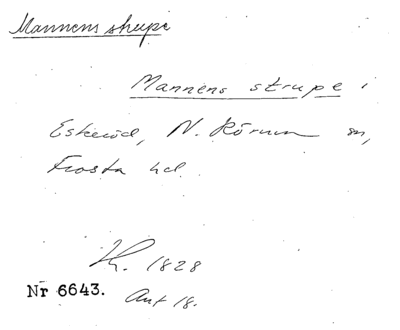 Mannens strupe
Mannens strupe i
Eskeröd, N. Rörum sn,
Frosta hd.
1828
Nr 6643. Ant 18.